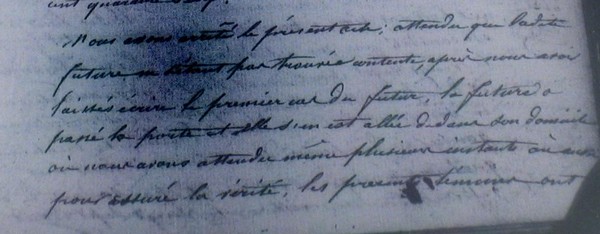 Nous avons le présent acte, attendu que ladite
future ne s'étant pas trouvée contente, après nous avoir
laissés écrire le premier cas du futur, la future a
passé la porte et elle s'en est allée dedans son domicile
où nous avons attendu même plusieurs instants où
pour assuré la vérité, les présents témoins ont